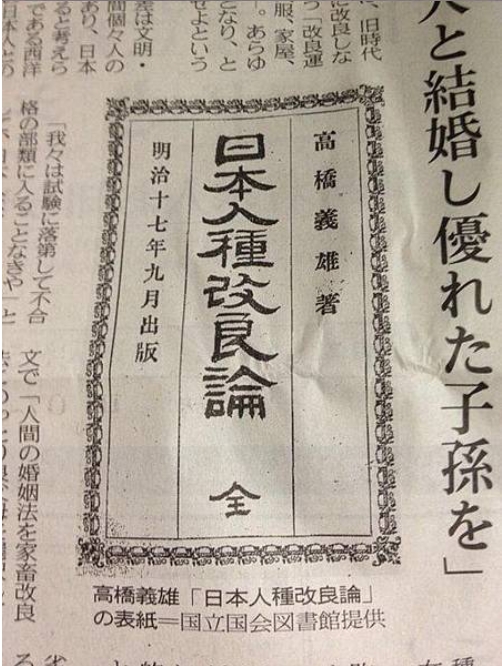 人と結婚し優れた子孫を」
、旧時代
に改良しな
う「改良運
服、家屋、
。あらゆ
となり、と
せよという
差は文明・
間個々人の
あり、日本
ると考えら
である西洋
日本人との
高橋義雄著
日本人種改良論 全
明治十七年九月出版
高橋義雄「日本人種改良論」
の表紙=国立国会図書館提供
「我々は試験に落第して不合
格の部類に入ることなきや」と
文で「人間の婚姻法を家畜改良